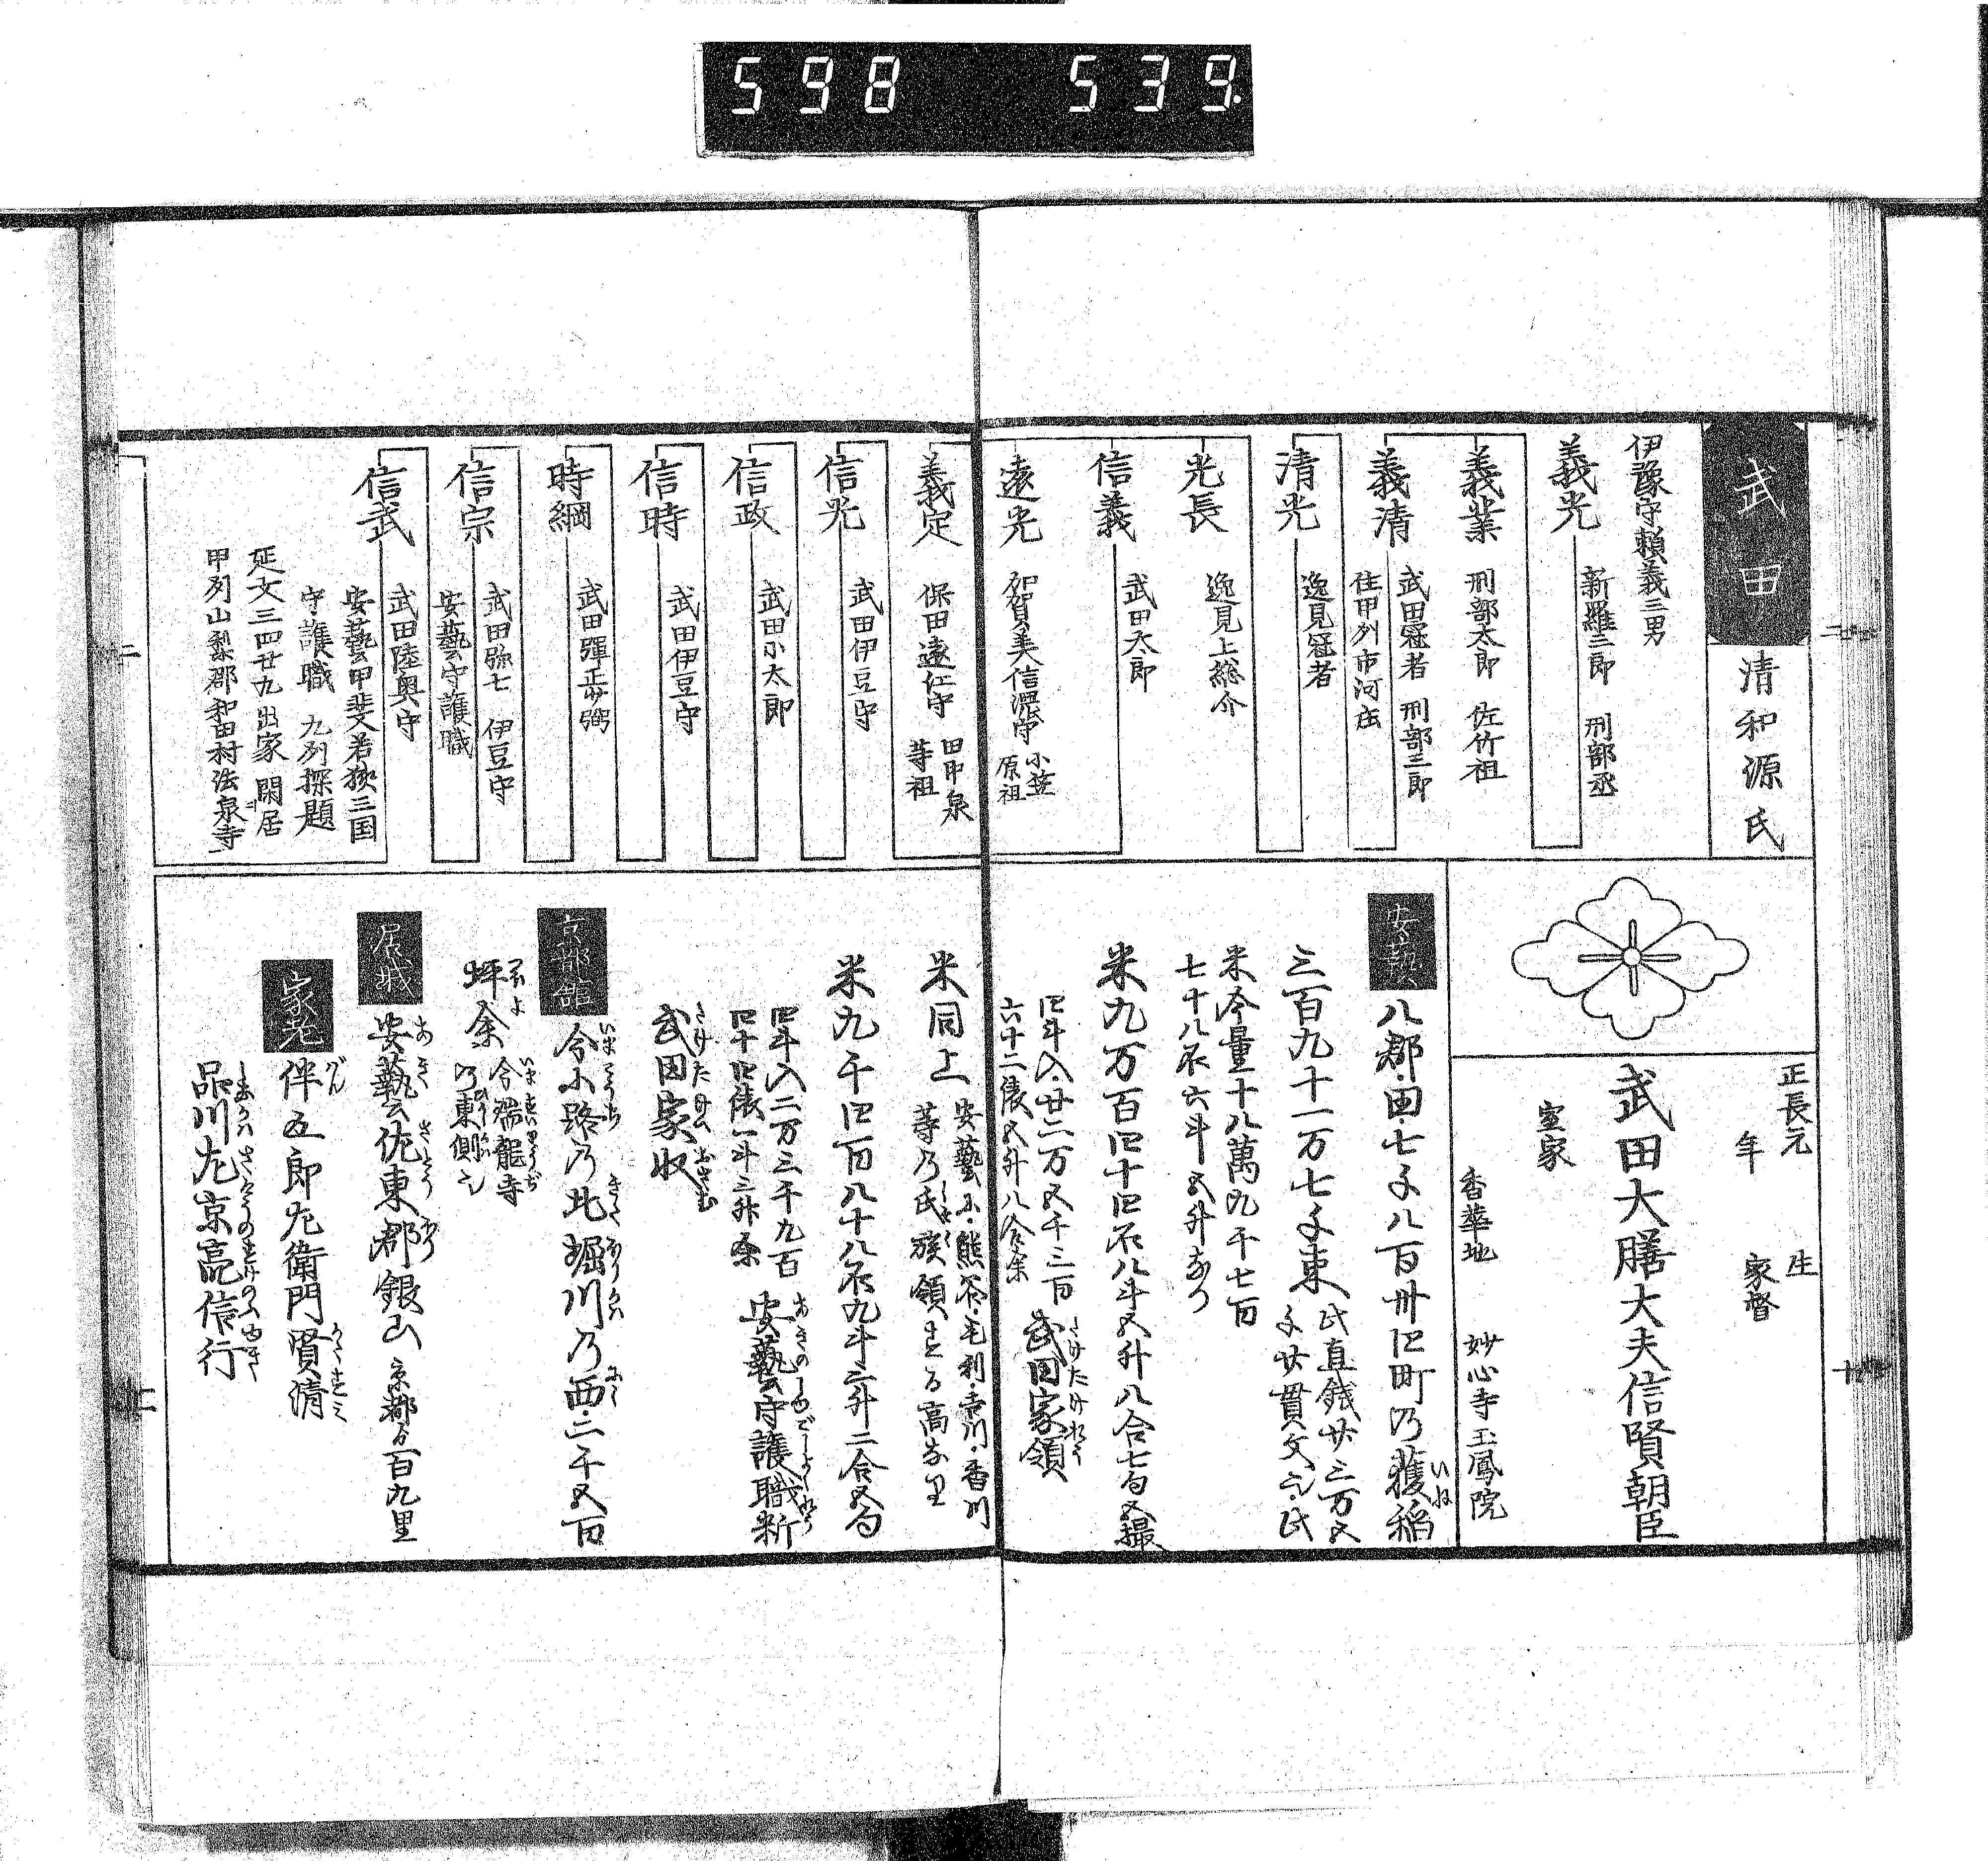 598 539.
武田
清和源氏
伊豫守頼義三男
義光 新羅三郎 刑部丞
義業 刑部太郎 佐竹祖
義清 武田冠者 刑部三郎
住甲列市河庄
清光 逸見冠者
光長 逸見上総介
信義 武田太郎
遠光 加賀美信濃守 小笠
原祖
正長元
年
生
家督
武田大膳大夫信賢朝臣
室家
香華地 妙心寺玉鳳院
安藝
八郡・田・七千八百卅四町乃穫稲
いね
三百九十一万七千束
此直銭廿三万五
千廿貫文之・此
米今量十八萬九千七百
七十八石六斗五升あり
米九万百四十四石八斗五升八合七勺五撮
四斗入・廿二万五千三百
六十二俵五升八合余
武田家領
義定 保田遠江守 田中泉
等祖
信光 武田伊豆守
信政 武田小太郎
信時 武田伊豆守
時綱 武田弾正少弼
信宗 武田弥七 伊豆守
安藝守護職
信武 武田陸奥守
安藝甲斐若狭三国
守護職 九列探題
延文三四廿九出家 閑居
甲列山梨郡和田村法泉寺
米同上
安藝小・熊谷・毛利・吉川・香川
等乃氏族領する高なり
米九千四百八十八石九斗三升二合五勺
四斗入二万三千九百
四十四俵一斗三升余
安藝守護職料
武田家収
京都館
今小路乃北堀川乃西・二千五百
坪余
今瑞龍寺
乃東側之
居城
安藝佐東郡銀山
京都ゟ百九里
家老
伴五郎左衛門賢清
品川左京亮信行